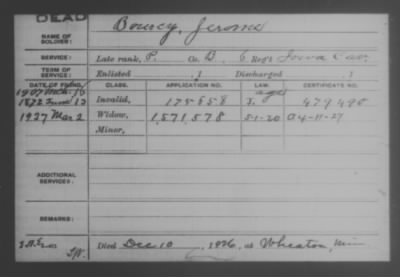 DEAD
NAME OF SOLDIER: Bouncy, Jerome
SERVICE: Late rank, P. Co. B, 6 Reg't Iowa Cav.
TERM OF SERVICE: Enlisted , 1 Discharged , 1
DATE OF FILING. CLASS. APPLICATION NO. LAW. CERTIFICATE NO.
1907
1872 June 13 Invalid, 175 558 479 490
1927 Mar 2 Widow, 1,571,578 5-1-20
Minor,
ADDITIONAL SERVICES:
REMARKS:
Died Dec 10, 1926, at Wheaton, Minn